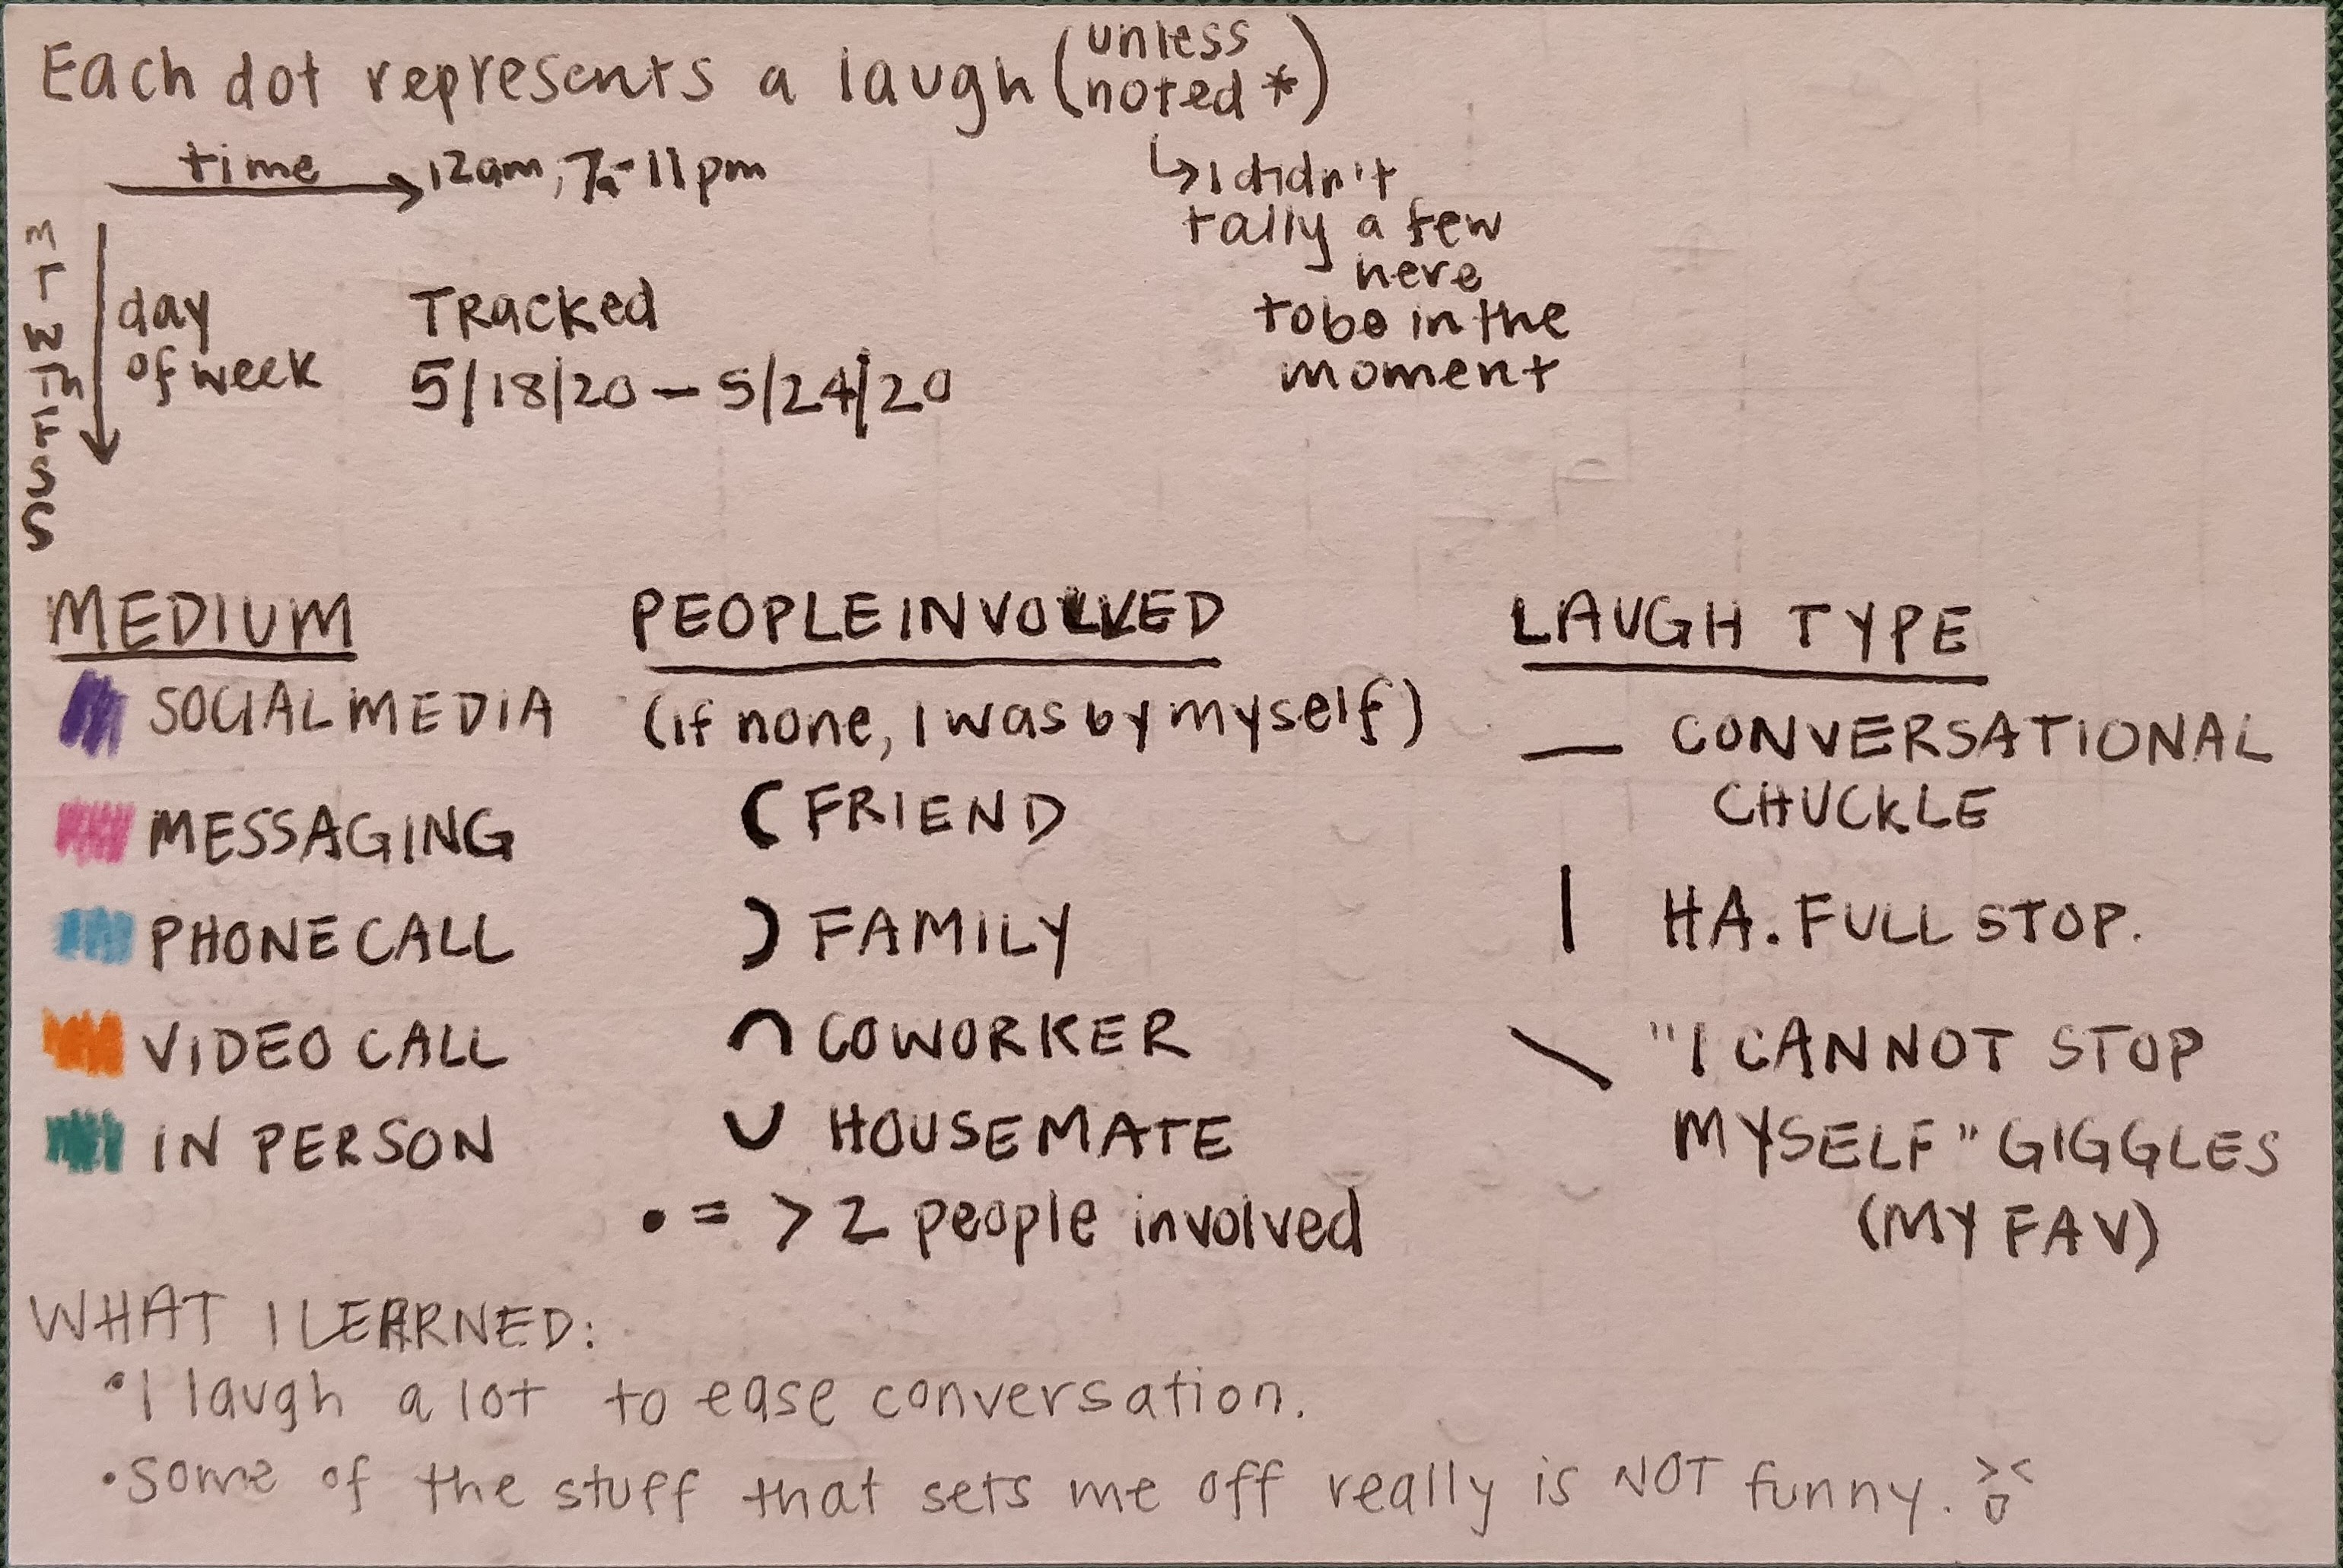 Each dot represents a laugh (unless noted *)
time → 12am, 7a-11pm
↳ I didn't
tally a few
here
to be in the
moment
M
T
W
Th
F
S
S
day
of week
Tracked
5/18/20 – 5/24/20
MEDIUM
SOCIAL MEDIA
MESSAGING
PHONE CALL
VIDEO CALL
IN PERSON
PEOPLE INVOLVED
(if none, I was by myself)
( FRIEND
) FAMILY
∩ COWORKER
∪ HOUSEMATE
• = > 2 people involved
LAUGH TYPE
— CONVERSATIONAL
CHUCKLE
| HA. FULL STOP.
\ "I CANNOT STOP
MYSELF" GIGGLES
(MY FAV)
WHAT I LEARNED:
• I laugh a lot to ease conversation.
• Some of the stuff that sets me off really is NOT funny.